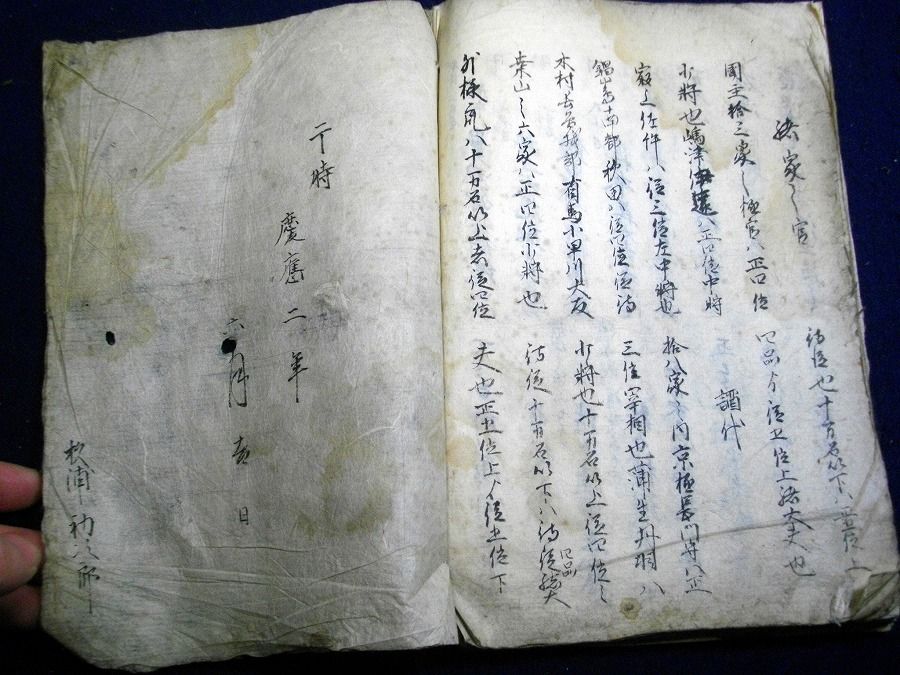 諸家之官
国主拾三家之極官ハ正四位
少将也嶋津伊達ハ正四位中将
最上佐竹ハ従三位左中将也
鍋嶋南部秋田ハ従四位侍従
木村長曽我部有馬小早川大友
葉山之六家ハ正四位少将也
外様ハ八十万石以上者従四位
侍従也十万石以下ハ正五位上
四品ゟ従五位上諸大夫也
譜代
拾八家之内京極長門守ハ正
三位宰相也蒲生丹羽ハ
少将也十万石以上従四位之
侍従十万石以下ハ侍従四品諸大
夫也正五位上ゟ従五位下
于時
慶應二年
六月吉日
松浦初次郎